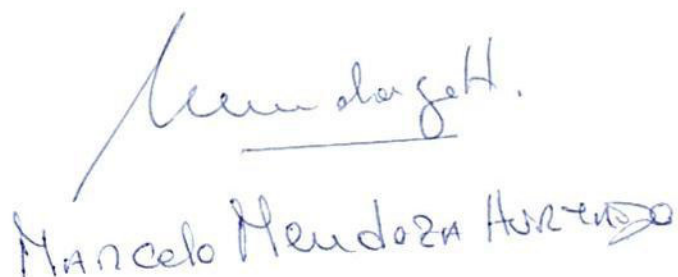 MendozaH.
MARCelo MendoZA HURTADO